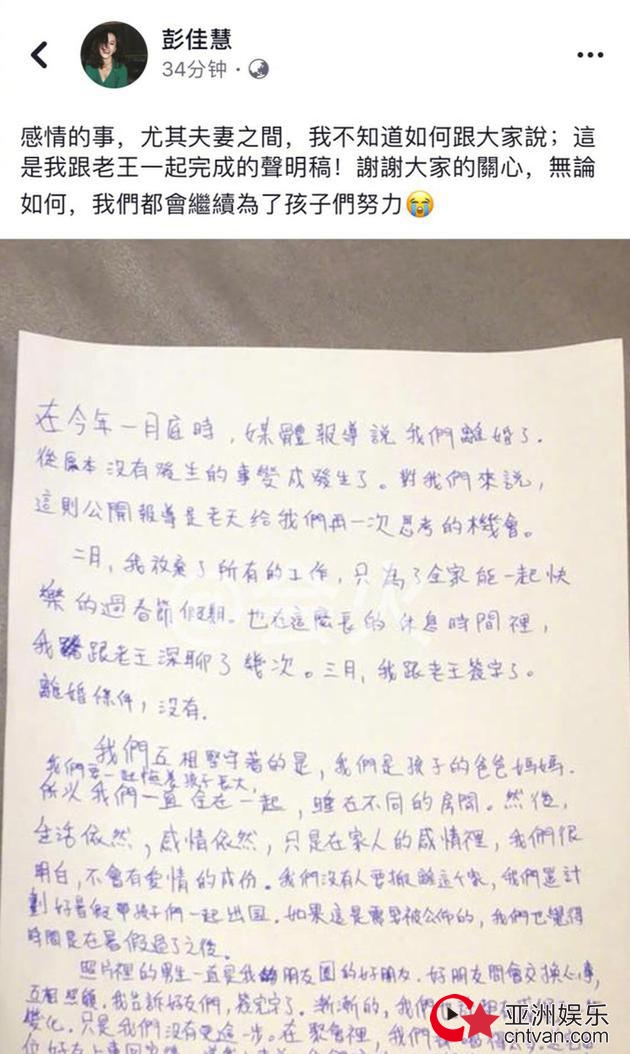 彭佳慧
34分钟 ·
感情的事，尤其夫妻之間，我不知道如何跟大家說；這
是我跟老王一起完成的聲明稿！謝謝大家的關心，無論
如何，我們都會繼續為了孩子們努力😭
在今年一月底時，媒體報導說我們離婚了．
從原本沒有發生的事變成發生了。對我們來說，
這則公開報導是老天給我們再一次思考的機會。
二月，我放棄了所有的工作，只為了全家能一起快
樂的過春節假期。也在這麼長的休息時間裡，
我跟老王深聊了幾次。三月，我跟老王簽字了。
離婚條件，沒有．
我們互相堅守著的是，我們是孩子的爸爸媽媽．
我們要一起陪著孩子長大，
所以我們一直住在一起，睡在不同的房間。然後，
生活依然，感情依然，只是在家人的感情裡，我們很
明白，不會有愛情的成份。我們沒有人要搬離這个家，我們還計
劃好暑假帶孩子們一起出国。如果這是需要被公佈的，我們也覺得
時間是在暑假過了之後。
照片裡的男生一直是我的朋友圈的好朋友．好朋友間會交換心事，
互相照顧．我告訴好友們，簽完字了．漸漸的，我們
變化．只是我們沒有更進一步。在聚會裡，我們
亚洲娱乐
cntvan.com